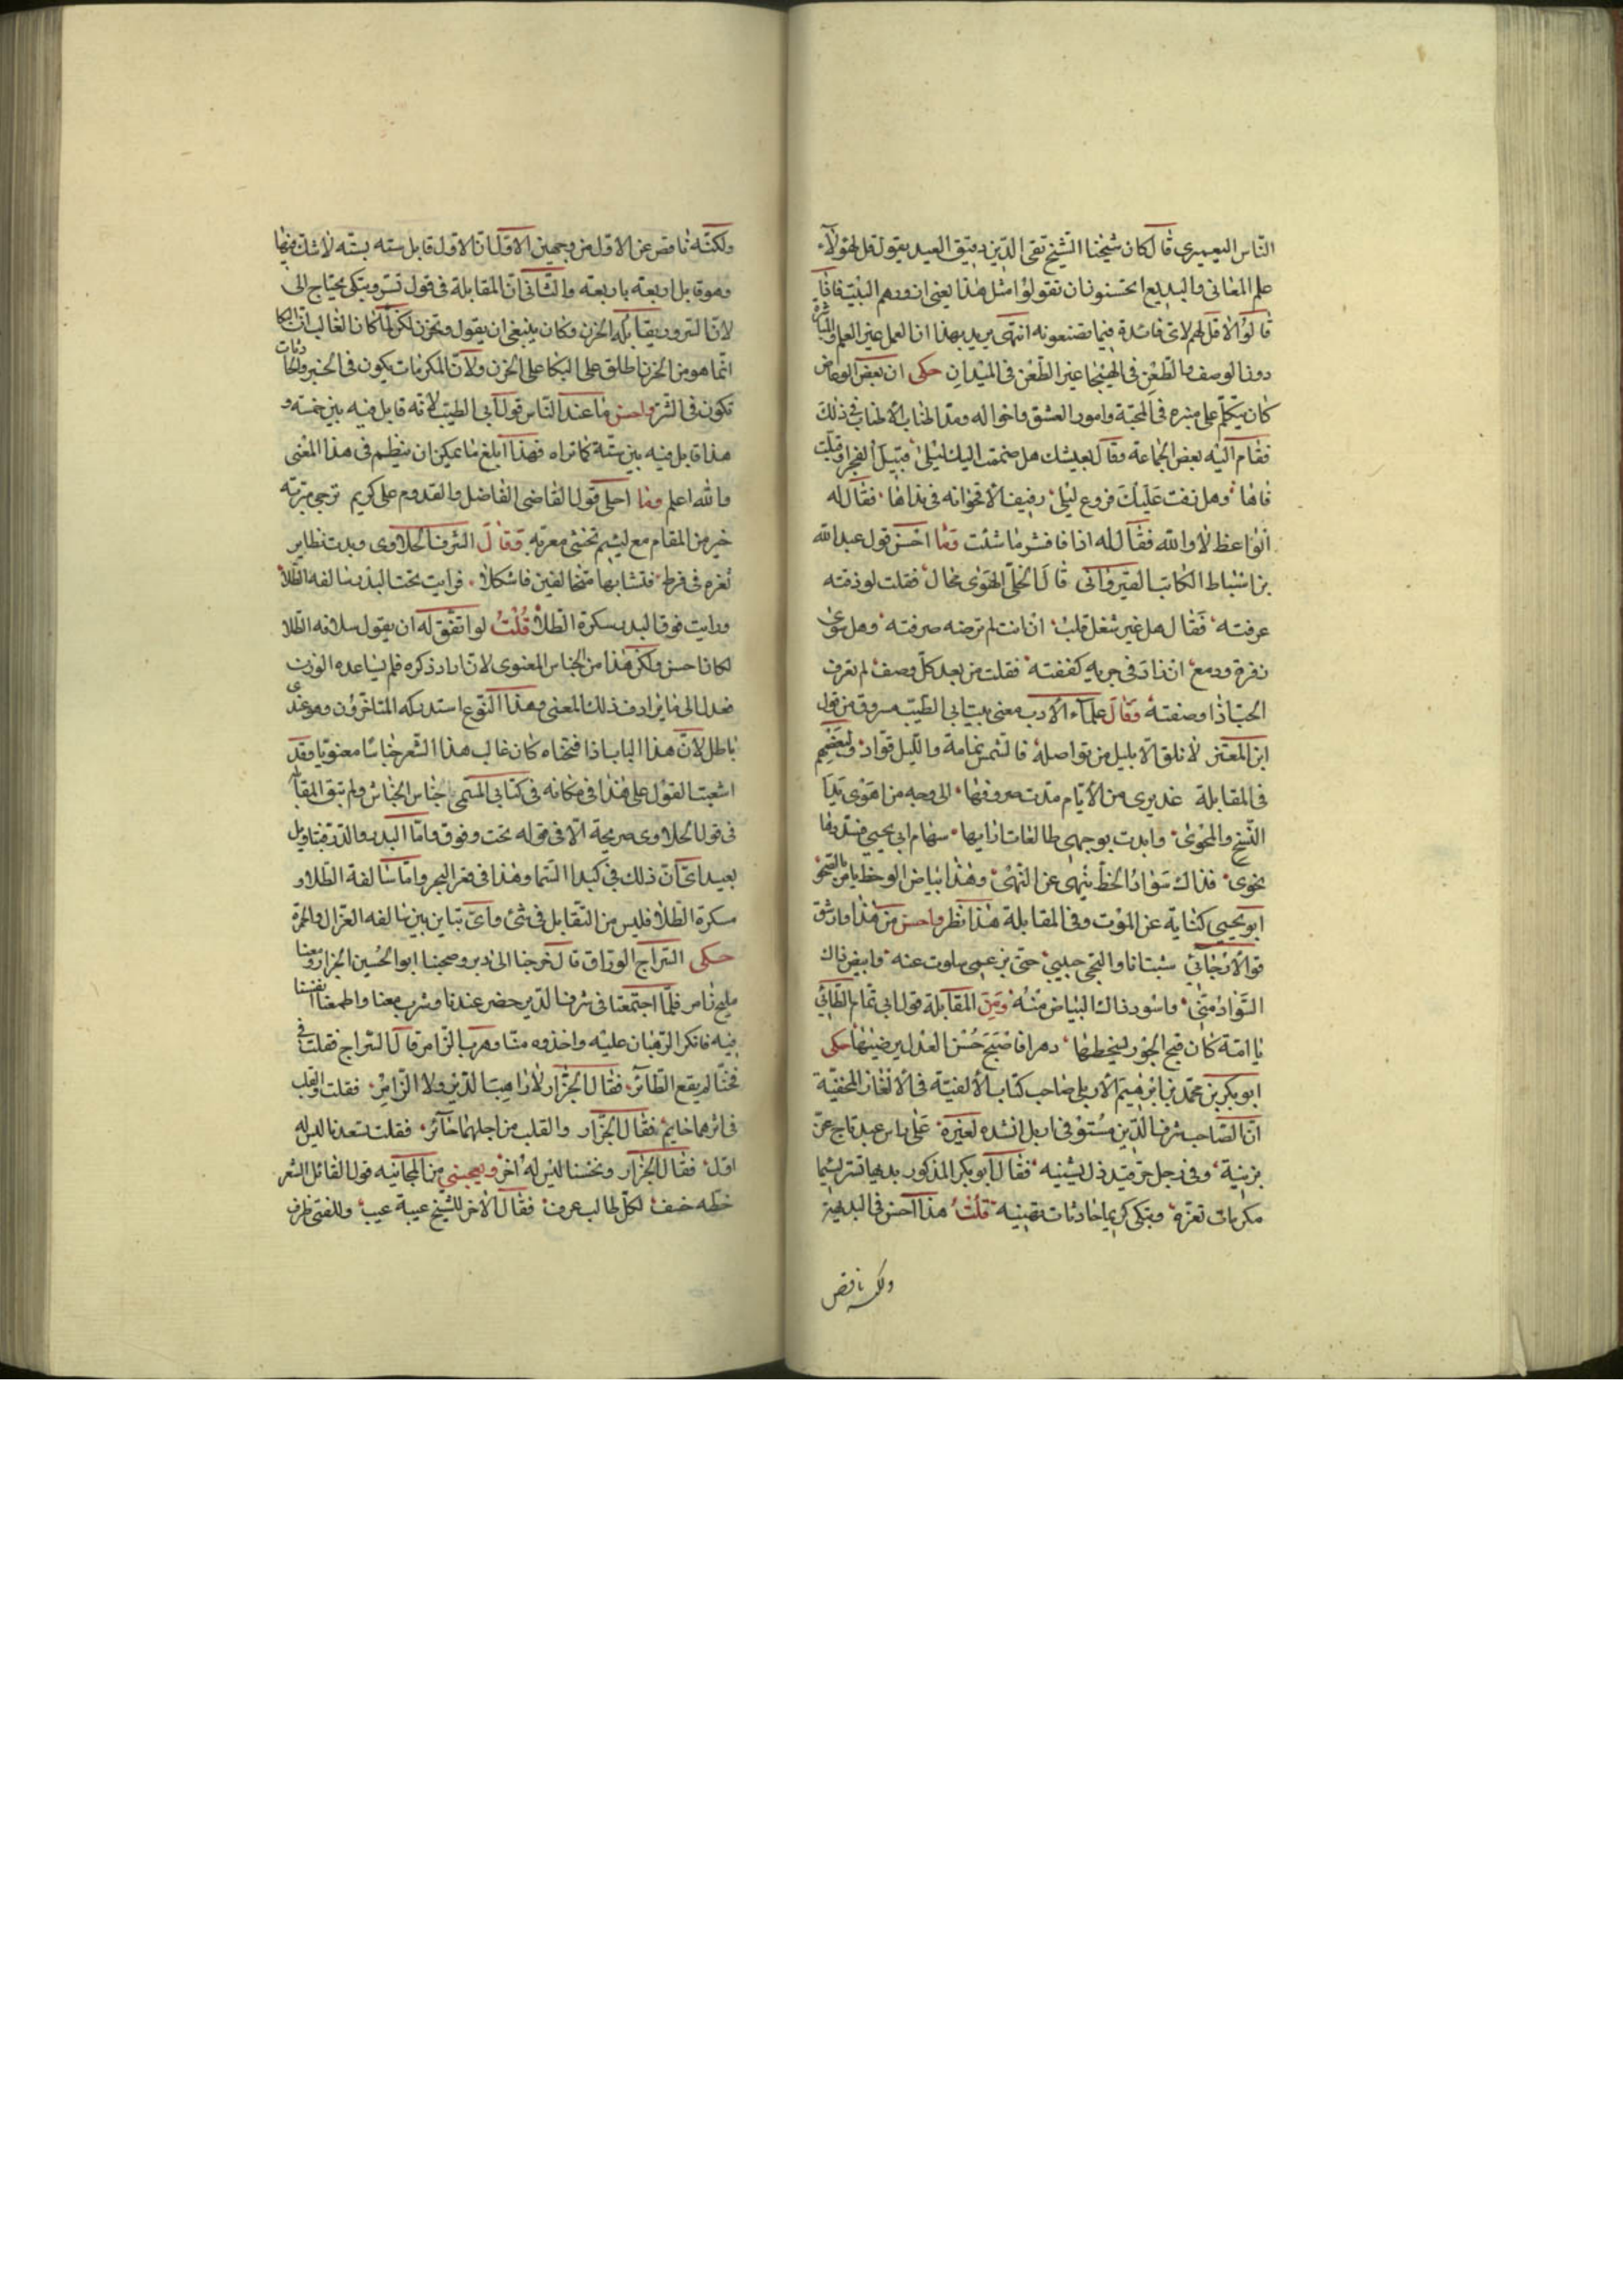 الناس اليعمري قال كان شيخنا الشيخ تقي الدين دقيق العيد يقول قل لهؤلاء
علم المعاني والبديع اتحسنون ان تقولوا مثل هذا يعني ان ورهم البنية فان
قالوا لا قل لهم لاي فائدة فيما تصنعونه انتهى يريد بهذا ان العمل غير العلم والمباشرة
دون الوصف فالطعن في الهيجا غير الطعن في الميدان حكى ان بعض الوعاظ
كان يتكلم على منبره في المحبة وامور العشق واحواله ومد اطناب الاطناب في ذلك
فقام اليه بعض الجماعة وقال بعيشك هل ضممت اليك ليلى قبيل الفجر او قبلت
فاها وهل رفت عليك فروع ليلى رفيف الاقحوانة في نداها فقال له
الواعظ لا والله فقال له اذا فافشر ما شئت وما احسن قول عبد الله
بن اسباط الكاتب القيرواني قال الخلي الهوى محال فقلت لو ذقته
عرفته فقال هل غير شغل قلب ان انت لم ترضه صرفته وهل سوى
زفرة ودمع ان زاد في جريه كففته فقلت من بعد كل وصف لم تعرف
الحب اذا وصفته وقال علماء الادب معنى بيت ابي الطيب مسروق من قول
ابن المعتز لا تلق الا بليل من تواصله فالشمس نمامة والليل قواد ولبعضهم
في المقابلة غديري من الايام مدت صروفها الى وجه من اهوى يد
النسخ والمحوى وابدت بوجهي طالعات ارايها سهام ابي يحيى مسددة
نحوى فذاك سواد الخط ينهى عن النهى وهذا بياض الوخط يامر بالصحو
ابو يحيى كناية عن الموت وفي المقابلة هذا نظر واحسن من هذا وارشق
قول الارجاني شبت انا والتحى حبيبي حتى بزعمي سلوت عنه وابيض ذاك
السواد مني واسود ذاك البياض منه ومن المقابلة قول ابي تمام الطائي
يا امة كان قبح الجور يسخطها دهرا فاصبح حسن العدل يرضيها حكى
ابو بكر بن محمد بن ابرهيم الاربلي صاحب كتاب الالفية في الالغاز المخفية
ان الصاحب شرف الدين مستوفي اربل انشده لغيره على راس عبد تاج عز
يزينه وفي رجل حر قيد ذل يشينه فقال ابو بكر المذكور بديها تسر لئيما
مكرمات تعزه وتبكى كريما حادثات تهينه قلت هذا احسن في البديهة
ولكنه ناقص
ولكنه ناقص عن الاول من وجهين الاول ان الاول قابل سته بسته لا شك فيها
وهو قابل اربعة باربعة والثاني ان المقابلة في قول تسر وتبكى يحتاج الى
لان السرور يقابله الحزن وكان ينبغي ان يقول وتحزن لكن لما كان الغالب ان البكا
انما هو من الحزن اطلق على البكا على الحزن ولان المكرمات يكون في الخير والحادثات
تكون في الشر واحسن ما عند الناس قول ابي الطيب لانه قابل فيه بين خمسة و
هذا قابل فيه بين ستة كما تراه فهذا ابلغ ما يمكن ان ينظم في هذا المعنى
والله اعلم وما احلى قول القاضي الفاضل والقدوم على كريم ترجى مبرته
خير من المقام مع لئيم تخشى معرته وقال الشرف الحلاوى وبدت نظاير
ثغره في قرطه فتشابها متخالفين فاشكلا فرايت تحت البدر سالفة الطلا
ورايت فوق البدر سكرة الطلا قلت لو اتفق له ان يقول سلافه الطلا
لكان احسن ولكن هذا من الجناس المعنوى لانه اراد ذكره فلم يساعده الوزن
فعدل الى ما يرادف ذلك المعنى وهذا النوع استدركه المتاخرون وهو عندى
باطل لان هذا الباب اذا فتحناه كان غالب هذا الشعر جناسا معنويا وقد
اشبعت القول على هذا في مكانه في كتابي المسمى جناس الجناس ولم تبق المقابلة
في قول الحلاوى صريحة الا في قوله تحت وفوق واما البدر والدر فتاويل
بعيد اي ان ذلك في كبد السما وهذا في قعر البحر واما سالفة الطلا و
سكرة الطلا فليس من التقابل في شئ واي تباين بين سالفه الغزال والخمرة
حكى السراج الوراق قال خرجنا الى دير وصحبنا ابو الحسين الجزار ومعنا
مليح زامر فلما اجتمعنا في شرف الدير حضر عندنا وشرب معنا واطمعنا انفسنا
فيه فانكر الرهبان عليه واخذوه منا وهرب الزامر قال السراج فقلت في
فخنا لم يقع الطائر فقال الجزار لا راهب الدير ولا الزامر فقلت والقلب
في اثرهما هايم فقال الجزار والقلب من اجلهما حائر فقلت لسعدنا ليس له
اول فقال الجزار ونحسنا ليس له اخر ويعجبني من المجانيه قول القائل الشعر
خطه خسف لكل طالب عرف فقال الاخر للشيخ عيبة عيب وللفتى ظرف